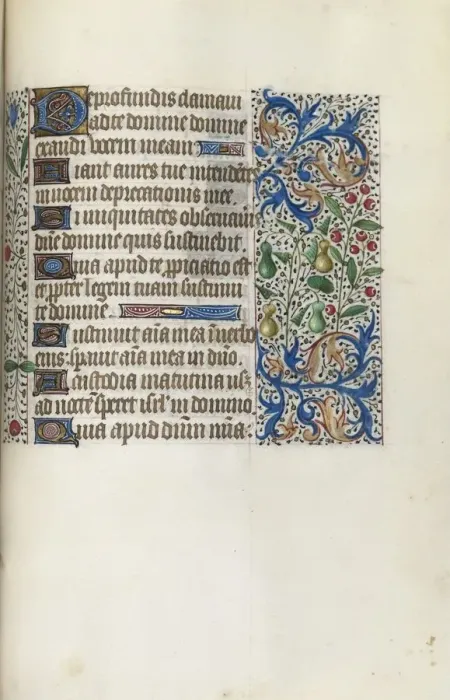 De profundis clamaui
ad te domine domine
exaudi vocem meam
Fiant aures tue intendẽtes
in vocem deprecationis mee.
Si iniquitates obseruaueris
dñe domine quis sustinebit.
Quia apud te ꝓpiciatio est
et ꝓpter legem tuam sustinui
te domine.
Sustinuit aĩa mea in verbo
eius sperauit aĩa mea in dño.
A custodia matutina usqꝫ
ad noctẽ speret isrl' in domino
Quia apud dñm mĩa.